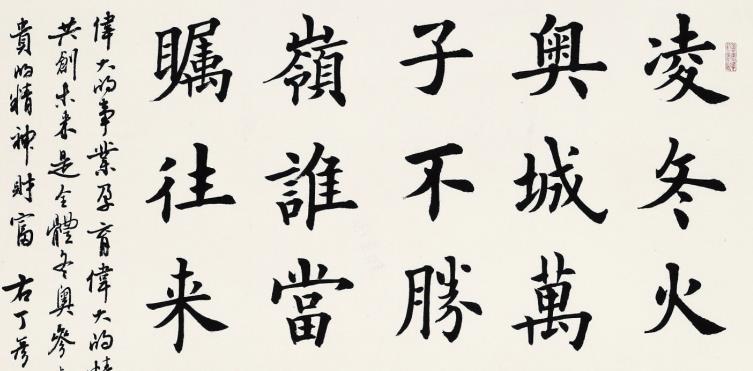 凌冬火
奥城萬
子不勝
嶺誰當
瞩往来
偉大的事業孕育偉大的精
共創未来是全體冬奥參
貴的精神財富 右丁彦